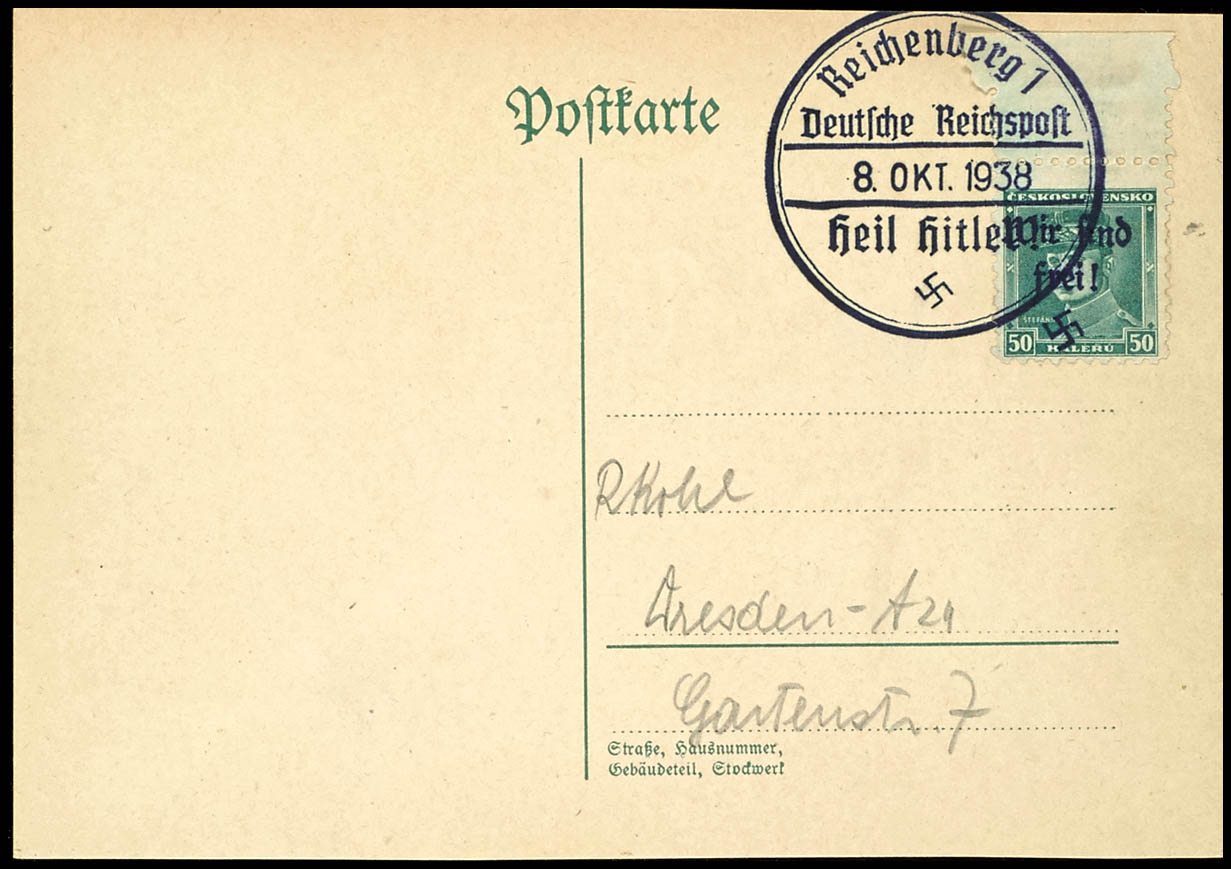 Postkarte
Reichenberg 1
Deutsche Reichspost
8. OKT. 1938
Heil Hitler!
ČESKOSLOVENSKO
Wir sind
frei!
ŠTEFÁNIK
50 HALÉŘŮ 50
R Kohl
Dresden-A 24
Gartenstr. 7
Straße, Hausnummer,
Gebäudeteil, Stockwerk